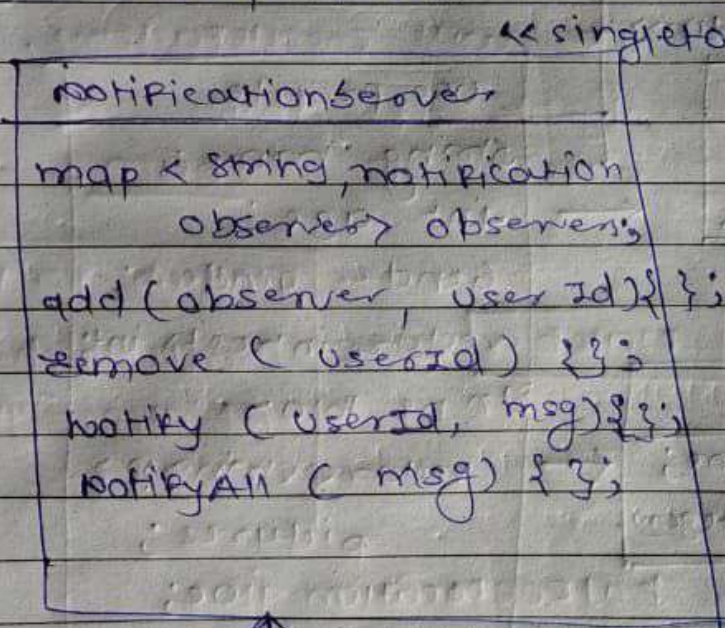 << singleto
NotificationServer
map < string, notification
observer> observers;
add (observer, user Id){ };
remove ( userId) {};
notify (userId, msg){};
notifyAll ( msg) { };